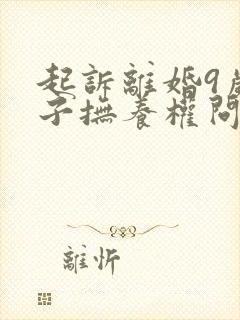 起訴離婚9歲
子撫養權問
離忻